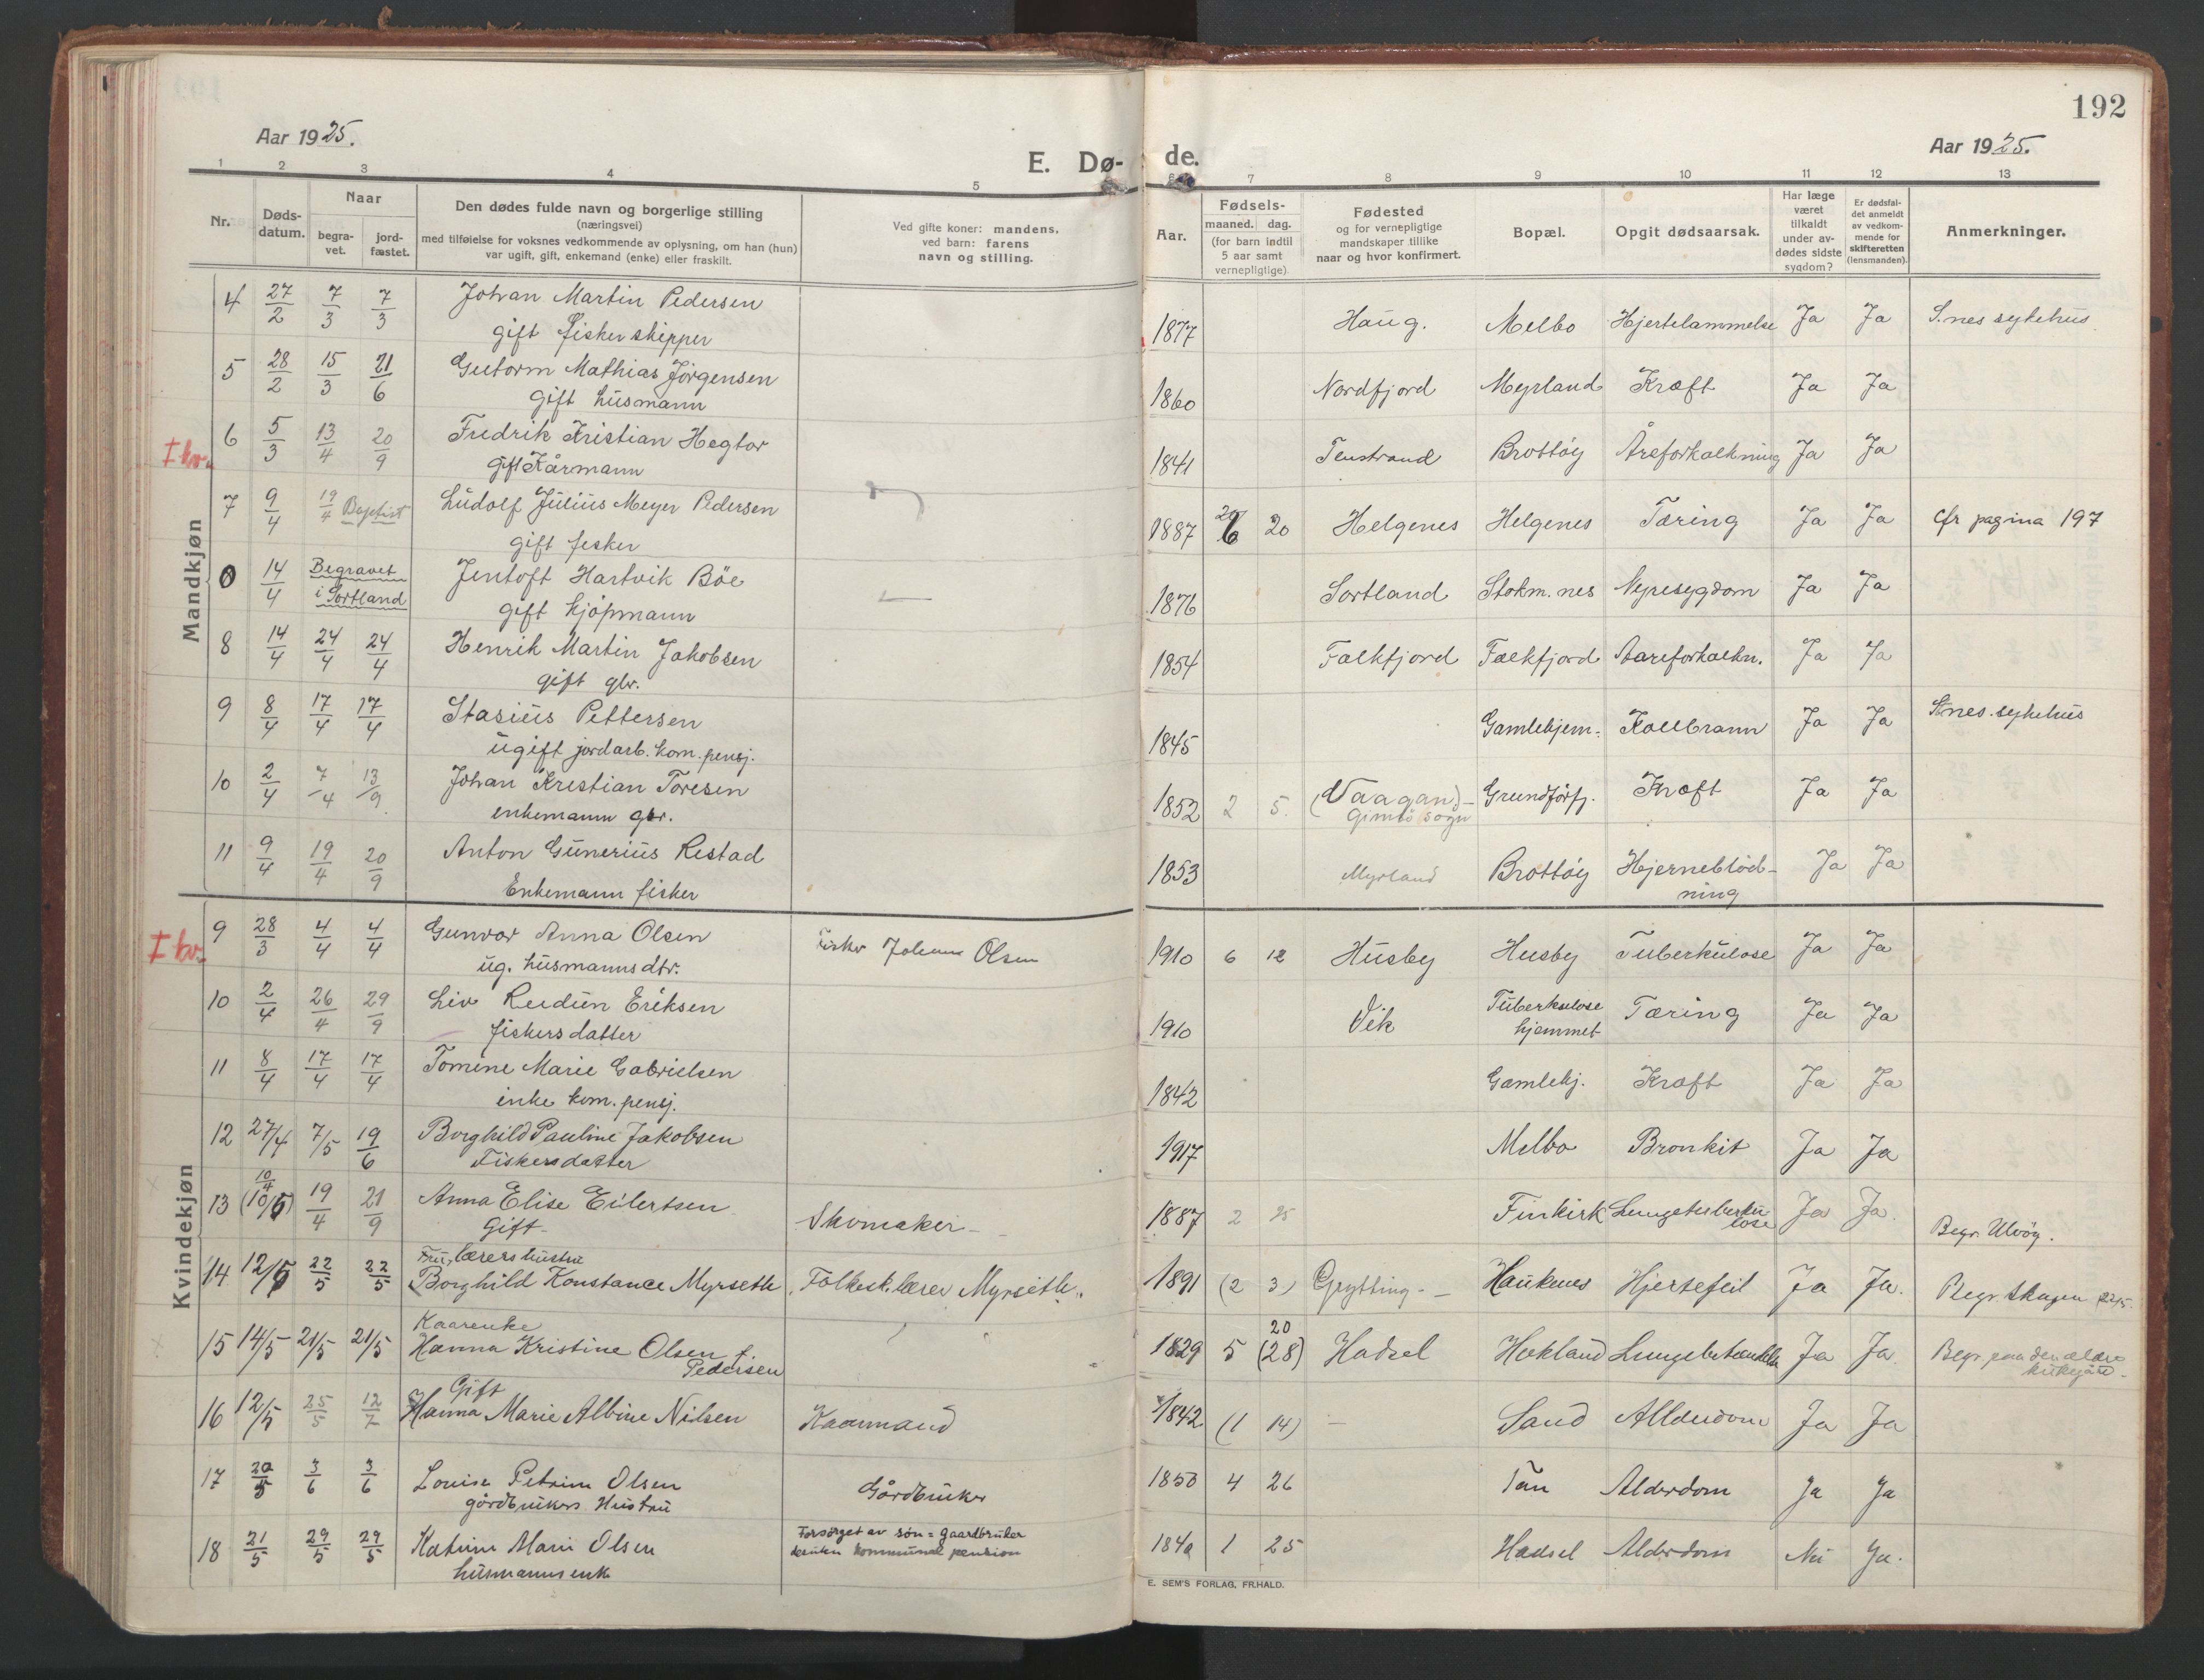 192
Aar 1925.
E. Dø-de.
Aar 1925.
1 2 3 4 5 6 7 8 9 10 11 12 13
Nr.
Døds-datum.
Naar
begra-vet.
jord-fæstet.
Den dødes fulde navn og borgerlige stilling
(næringsvei)
med tilføielse for voksnes vedkommende av oplysning, om han (hun)
var ugift, gift, enkemand (enke) eller fraskilt.
Ved gifte koner: mandens,
ved barn: farens
navn og stilling.
Aar.
Fødsels-
maaned. dag.
(for barn indtil
5 aar samt
vernepligtige).
Fødested
og for vernepligtige
mandskaper tillike
naar og hvor konfirmert.
Bopæl.
Opgit dødsaarsak.
Har læge
været
tilkaldt
under av-
dødes sidste
sygdom?
Er dødsfal-
det anmeldt
av vedkom-
mende for
skifteretten
(lensmanden).
Anmerkninger.
Mandkjøn
4 27/2 7/3 7/3 Johan Martin Pedersen 1877 Haug. Melbo Hjertelammelse Ja Ja S.nes sykehus
gift fisker skipper
5 28/2 15/3 21/6 Gutorm Mathias Jörgensen 1860 Nordfjord Myrland Kræft Ja Ja
gift husmann
I kv. 6 5/3 13/4 20/9 Fredrik Kristian Hegtor 1841 Tenstrand Brottöy Åreforkalkning Ja Ja
Gift Kårmann
7 9/4 19/4 Baptist Ludolf Julius Meyer Pedersen 1887 6 20 Helgenes Helgenes Tæring Ja Ja cfr pagina 197
gift fisker
0 14/4 Begravet i Sortland Jentoft Hartvik Böe 1876 Sortland Stokm.nes Nyresygdom Ja Ja
gift kjöpmann
8 14/4 24/4 24/4 Henrik Martin Jakobsen 1854 Falkfjord Falkfjord Aareforkalkn. Ja Ja
gift gbr.
9 8/4 17/4 17/4 Stasius Pettersen 1845 Gamlehjem. Kollbrann Ja Ja S.nes. sykehus
ugift jordarb. kom. pensj.
10 2/4 7/4 13/9 Johan Krestian Toresen 1852 2 5. (Vaagan)- Grundförfj. Kræft Ja Ja
enkemann gbr. Gimsö sogn
11 9/4 19/4 20/9 Anton Gunerius Restad 1853 Myrland Brottöy Hjerneblöd- Ja Ja
Enkemann fisker ning
Kvindekjøn
I kv. 9 28/3 4/4 4/4 Gunvor Anna Olsen Fisker Johann Olsen 1910 6 12 Husby Husby Tuberkulose Ja Ja
ug. husmannsdtr.
10 2/4 26/4 29/9 Liv Reidun Eriksen 1910 Vik Tuberkulose hjemmet Tæring Ja Ja
fiskersdatter
11 8/4 17/4 17/4 Tomine Marie Gabrielsen 1842 Gamlehj. Kræft Ja Ja
enke kom. pensj.
12 27/4 7/5 19/6 Borghild Pauline Jakobsen 1917 Melbo Bronkit Ja Ja
Fiskersdatter
13 10/4 (10/5) 19/4 21/9 Anna Elise Eilertsen Skomaker- 1887 2 25 Finkirk Lungetuberkulose Ja Ja.
Gift- Begr. Ulvöy.
Fru, lærers hustru
14 12/5 22/5 22/5 Borghild Konstance Myrseth Folkesk.lærer Myrseth. 1891 (2 3) Grytting- Haukenes Hjertefeil Ja Ja. Begr. Skagen 22/5.
Kaarenke
15 14/5 21/5 21/5 Hanna Kristine Olsen f. 1829 5 20 (28) Hadsel Hokland Lungebetændelse Ja Ja. Begr. paa den ældre
Pedersen kirkegård.
Gift
16 12/5 25/5 12/7 Hanna Marie Albine Nilsen Kaarmand 1842 (1 14) - Sand Allderdom Ja Ja
17 20/5 3/6 3/6 Louise Petrine Olsen Gårdbruker 1850 4 26 Tan Alderdom Ja Ja
gårdbrukers Hustru
18 21/5 29/5 29/5 Katrine Marie Olsen Forsörget av sön = gaardbruker 1840 1 25 Hadsel Alderdom Nei Ja.
husmanns enke desuten kommunal pension
E. SEM'S FORLAG, FR.HALD.